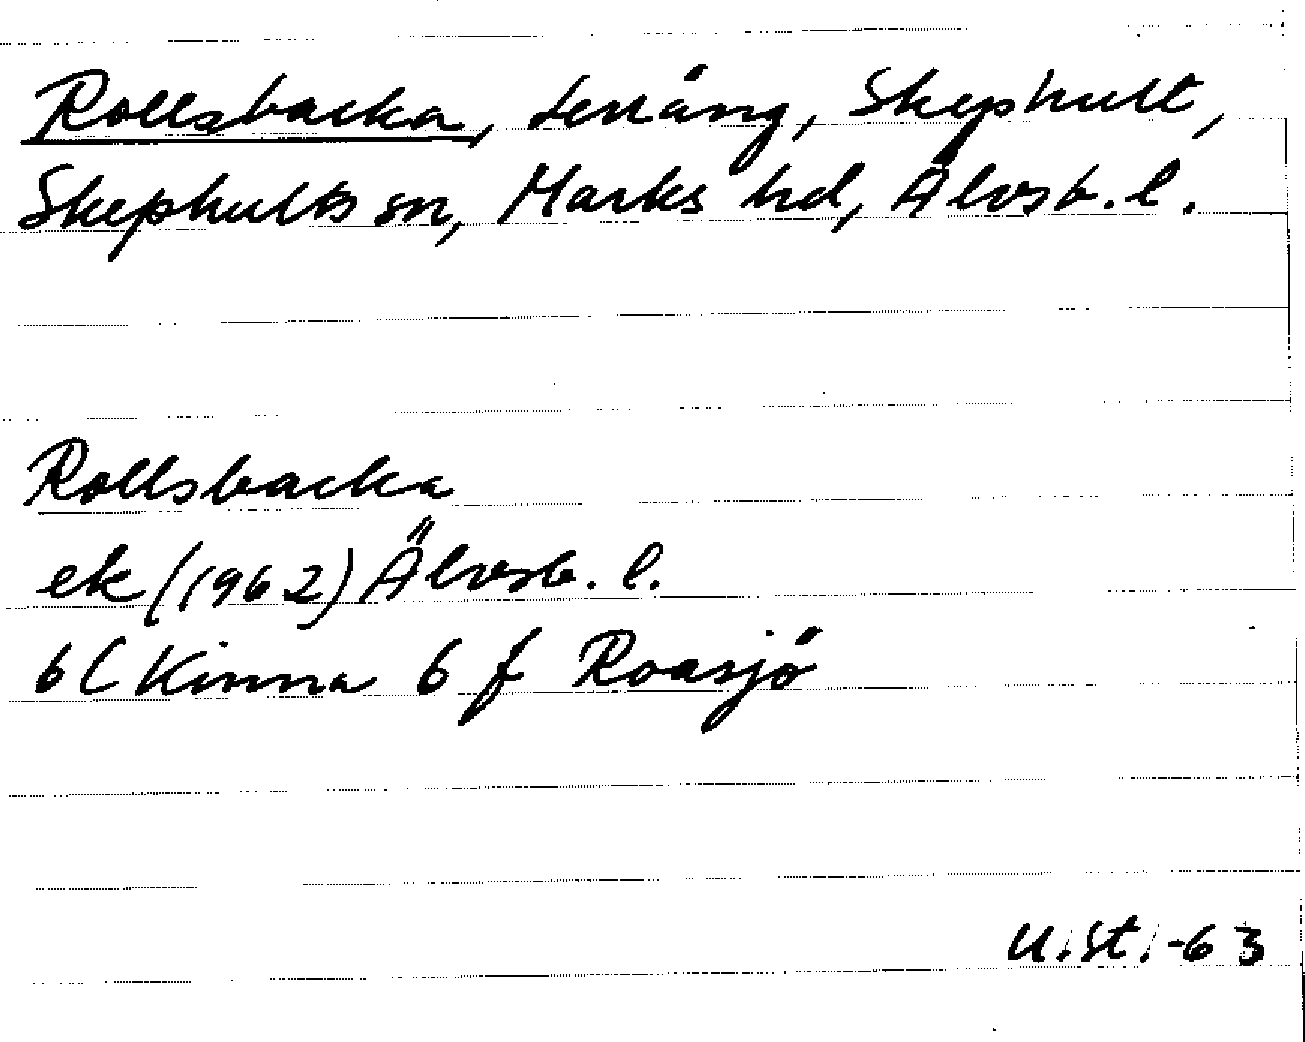 Rollsbacka, terräng, Skephult,
Skephults sn, Marks hd, Älvsb. l.
Rollsbacka
ek (1962) Älvsb. l.
6C Kinna 6 f Roasjö
U. St. -63